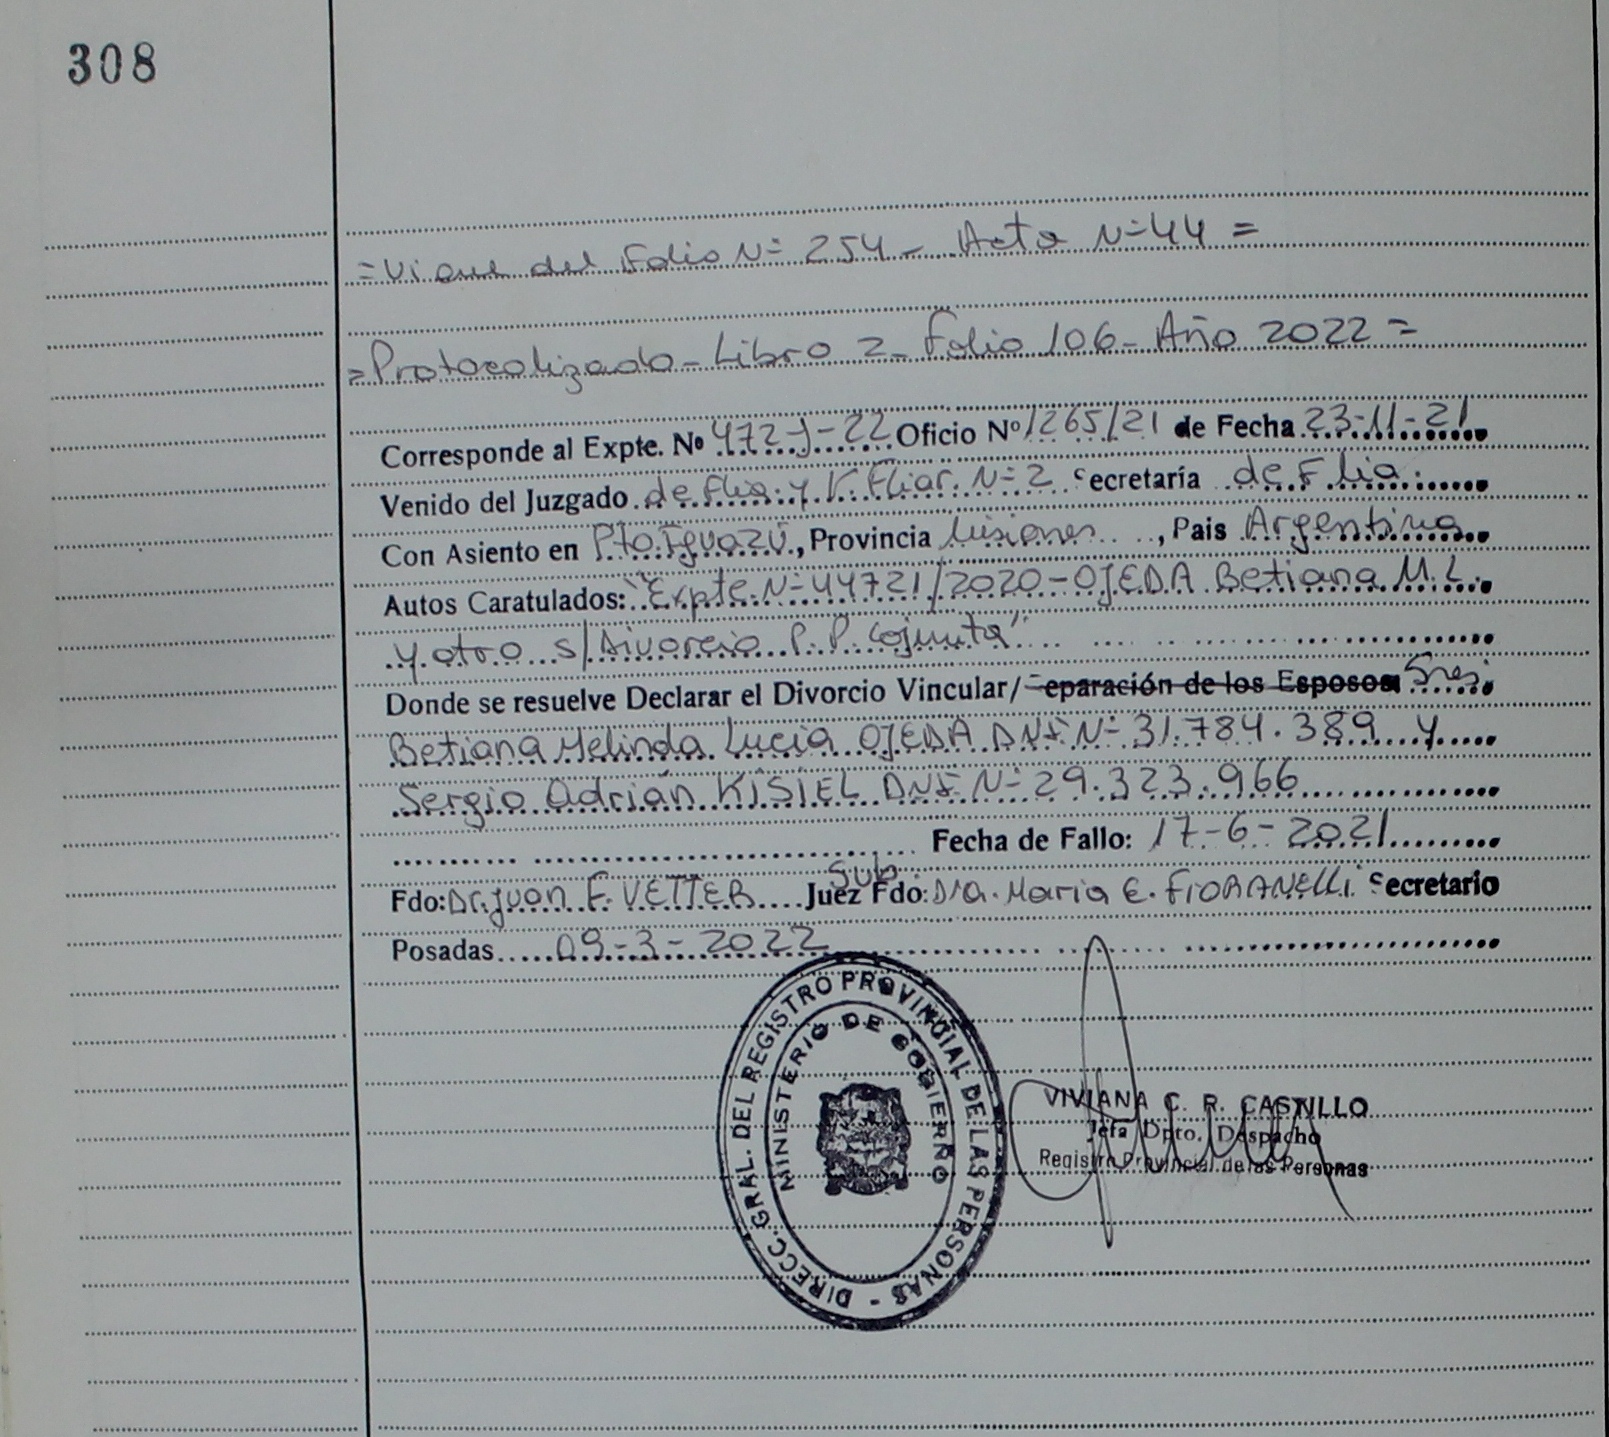 308
=Viene del Folio N= 254 - Acta N=44 =
=Protocolizado - Libro 2 - Folio 106 - Año 2022 =
Corresponde al Expte. Nº 472-J-22 Oficio Nº 1265/21 de Fecha 23-11-21
Venido del Juzgado de Flia. y V. Fliar. N=2 Secretaría de Flia.
Con Asiento en Pto. Iguazú, Provincia Misiones, Pais Argentina
Autos Caratulados: "Expte. N=44721/2020-OJEDA Betiana M.L.
y otro s/Divorcio P.P. Cojunta"
Donde se resuelve Declarar el Divorcio Vincular/ eparación de los Esposos Sres.
Betiana Melinda Lucia OJEDA DNI N=31.784.389 y
Sergio Adrián KISIEL DNI N=29.323.966
Fecha de Fallo: 17-6-2021
Fdo: Dr. Juan F. VETTER Juez Fdo: Dra. Maria E. FIORANELLI Sub Secretario
Posadas 09-3-2022
DIRECC. GRAL. DEL REGISTRO PROVINCIAL DE LAS PERSONAS -
MINISTERIO DE GOBIERNO
VIVIANA C. R. CASTILLO
Jefa Dpto. Despacho
Registro Provincial de las Personas